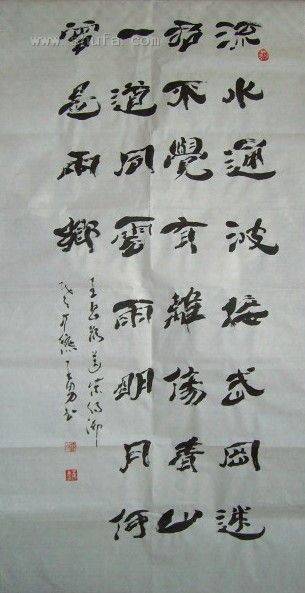 流水通波接武岡送
君不覺有離傷青山
一道同雲雨明月何
曾是兩鄉
王昌齡送柴侍御